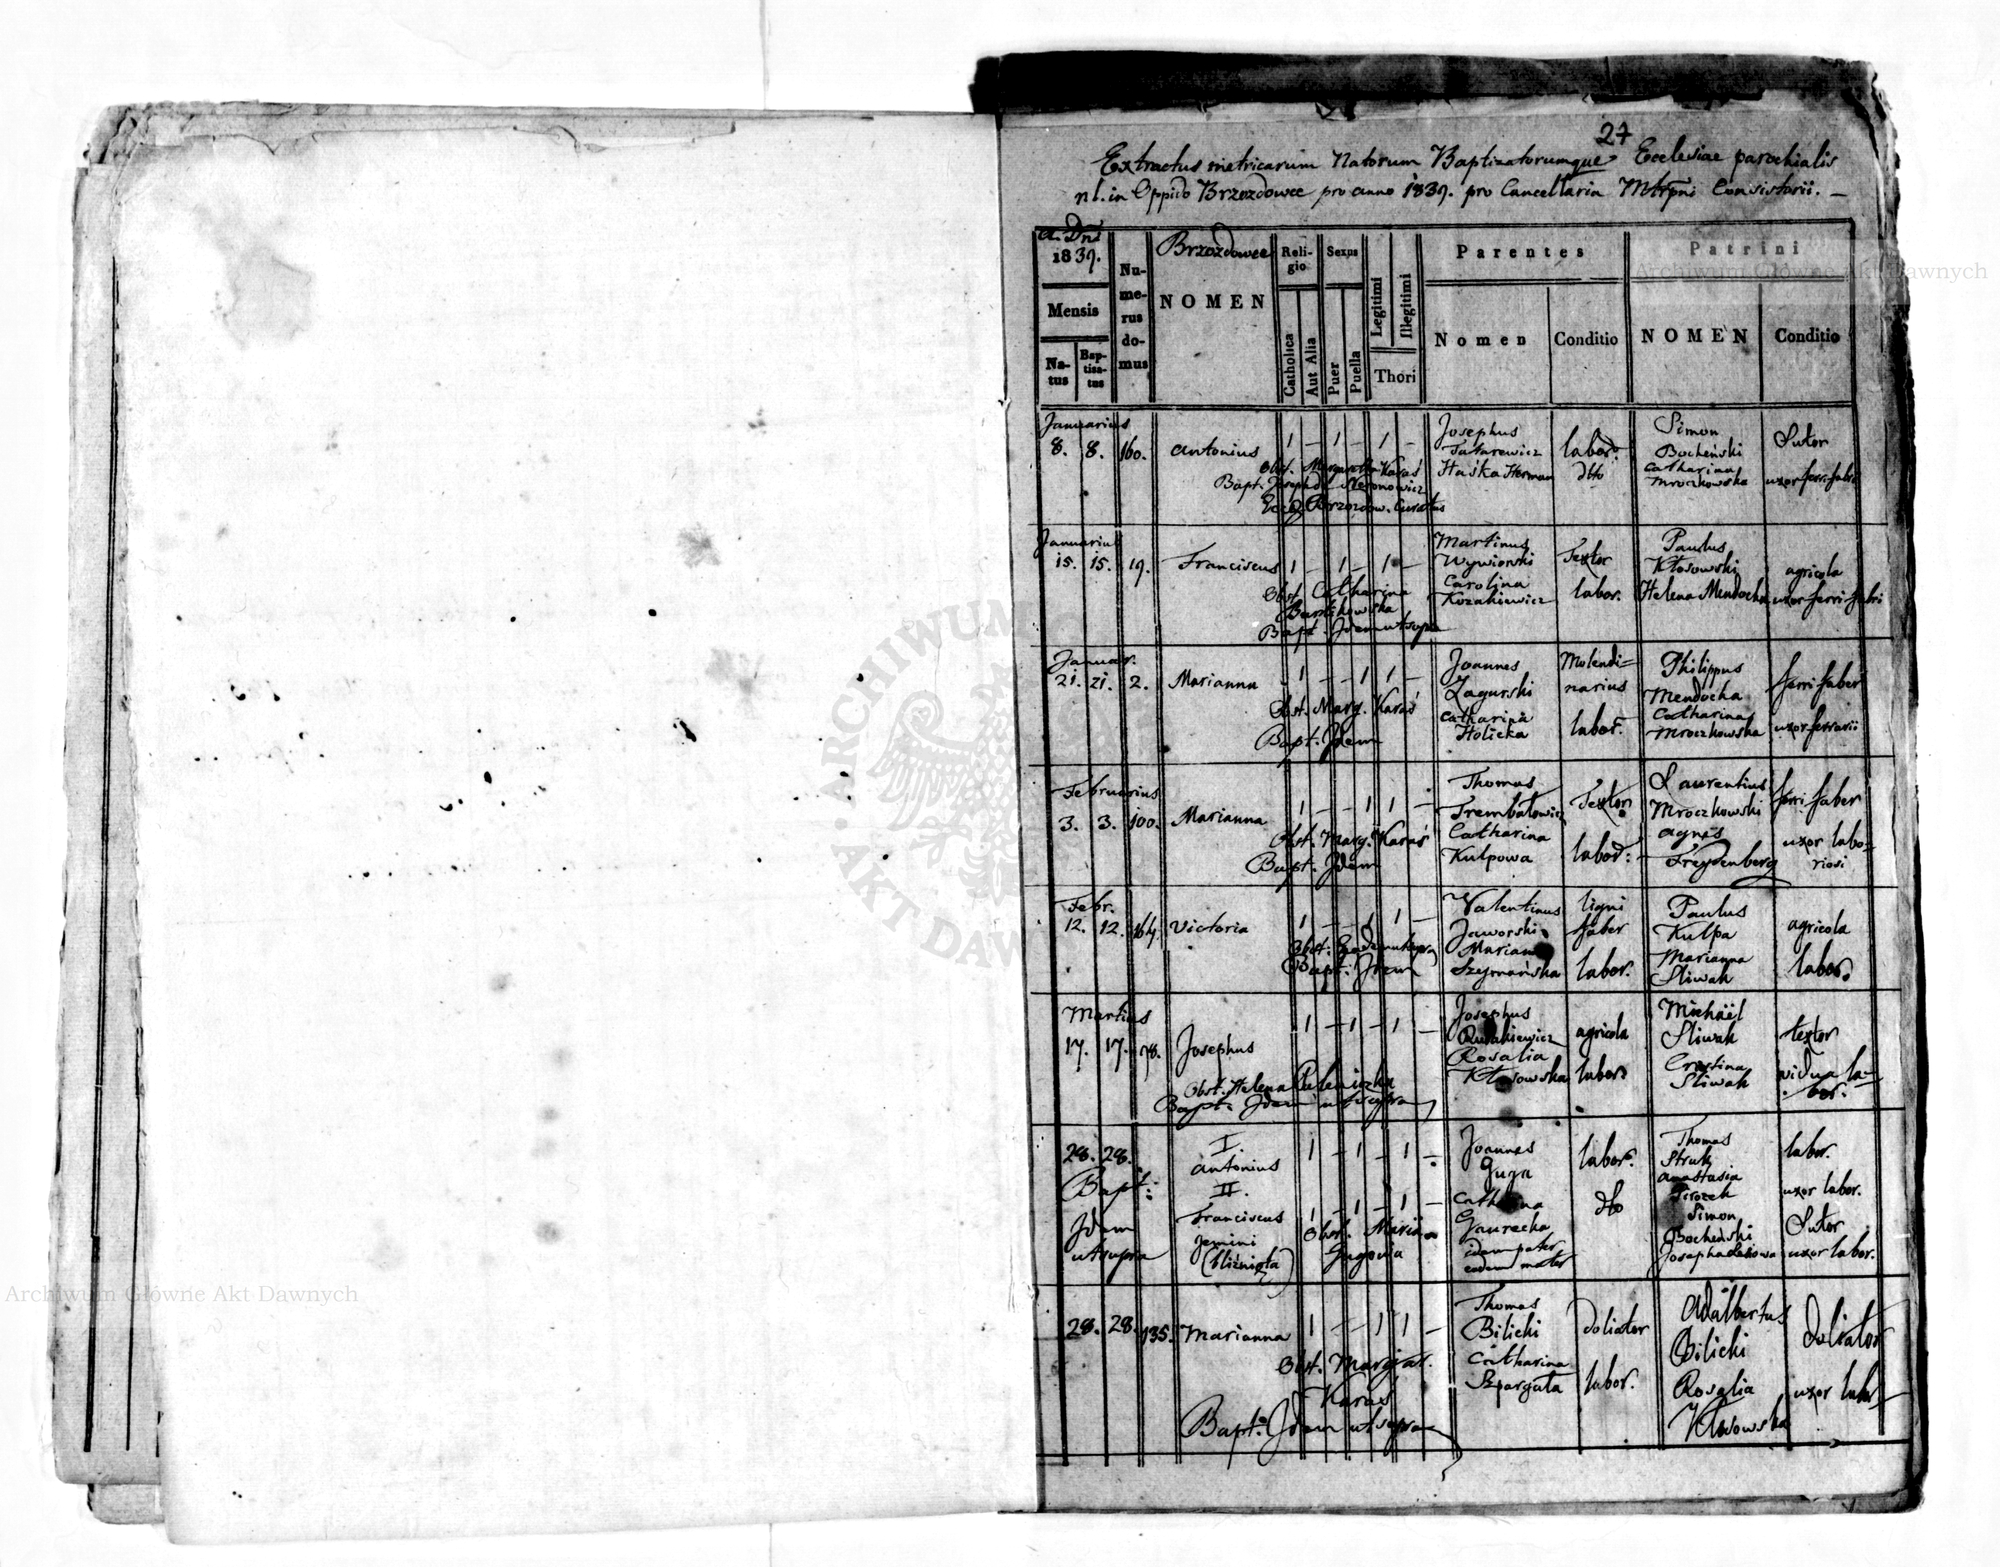 27
Extractus metricarum Natorum Baptizatorumque Ecclesiae parochialis
r. l. in Oppido Brzozdowce pro anno 1839. pro Cancellaria Mtrpni Consistorii. —
A. Dni
1839.
Mensis
Na-
tus
Bap-
tisa-
tus
Nu-
me-
rus
do-
mus
Brzozdowce
NOMEN
Reli-
gio
Catholica
Aut Alia
Sexus
Puer
Puella
Legitimi
Illegitimi
Thori
Parentes
Nomen
Conditio
Patrini
NOMEN
Conditio
Januarius
8. 8. 160.
Antonius
1 – 1 – 1 –
Obst. Margaretha Karaś
Bapt. Josephus
Eccl. Brzozdow. Curatus
Josephus
Tatarewicz
Haśka Herman
labor.
dtto
Simon
Bocheński
Catharina
Mroczkowska
Sutor
uxor ferri fabri
Januarius
15. 15. 19.
Franciscus
1 – 1 – 1 –
Obst. Catharina
Bapt. Idem ut supra
Martinus
Wywiorski
Carolina
Kozakiewicz
Textor
labor.
Paulus
Kłosowski
Helena Mendocha
agricola
uxor ferri fabri
Januar.
21. 21. 2.
Marianna
1 – – 1 1 –
Obst. Marg. Karaś
Bapt. Idem
Joannes
Zagurski
Catharina
Holicka
Molendi=
narius
labor.
Philippus
Mendocha
Catharina
Mroczkowska
ferri faber
uxor ferrarii
Februarius
3. 3. 100.
Marianna
1 – – 1 1 –
Obst. Marg. Karaś
Bapt. Idem
Thomas
Trembałowicz
Catharina
Kulpowa
Textor
labor:
Laurentius
Mroczkowski
Agnes
Freydenberg
ferri faber
uxor labo-
riosi
Febr.
12. 12. 164.
Victoria
1 – – 1 1 –
Obst. Eadem ut supra
Bapt. Idem
Valentinus
Jaworski
Marianna
Szymańska
ligni
faber
labor.
Paulus
Kulpa
Marianna
Śliwak
agricola
labor.
Martius
17. 17. 78.
Josephus
1 – 1 – 1 –
Obst. Helena
Bapt. Idem ut supra
Josephus
Rusakiewicz
Rosalia
Kłosowska
agricola
labor
Michäel
Sliwak
Cristina
Sliwak
textor
vidua la-
bor.
28. 28.
Bapt:
Idem
ut supra
I.
Antonius
II.
Franciscus
gemini
(bliźnięta)
1 – 1 – 1 –
1 – 1 – 1 –
Obst. Maria
Gugowa
Joannes
Guga
Catharina
Gaurecka
idem pater
eadem mater
labor.
dtto
Thomas
Struk
Anastasia
Pirożek
Simon
Bocheński
Josepha
labor.
uxor labor.
Sutor
uxor labor.
28. 28. 135.
Marianna
1 – – 1 1 –
Obst. Margar.
Karaś
Bapt. Idem ut supra
Thomas
Bilicki
Catharina
Szpargała
doliator
labor.
Adalbertus
Bilicki
Rosalia
Kłosowska
doliator
uxor labor
Archiwum Główne Akt Dawnych
Archiwum Główne Akt Dawnych
ARCHIWUM
AKT DAWN